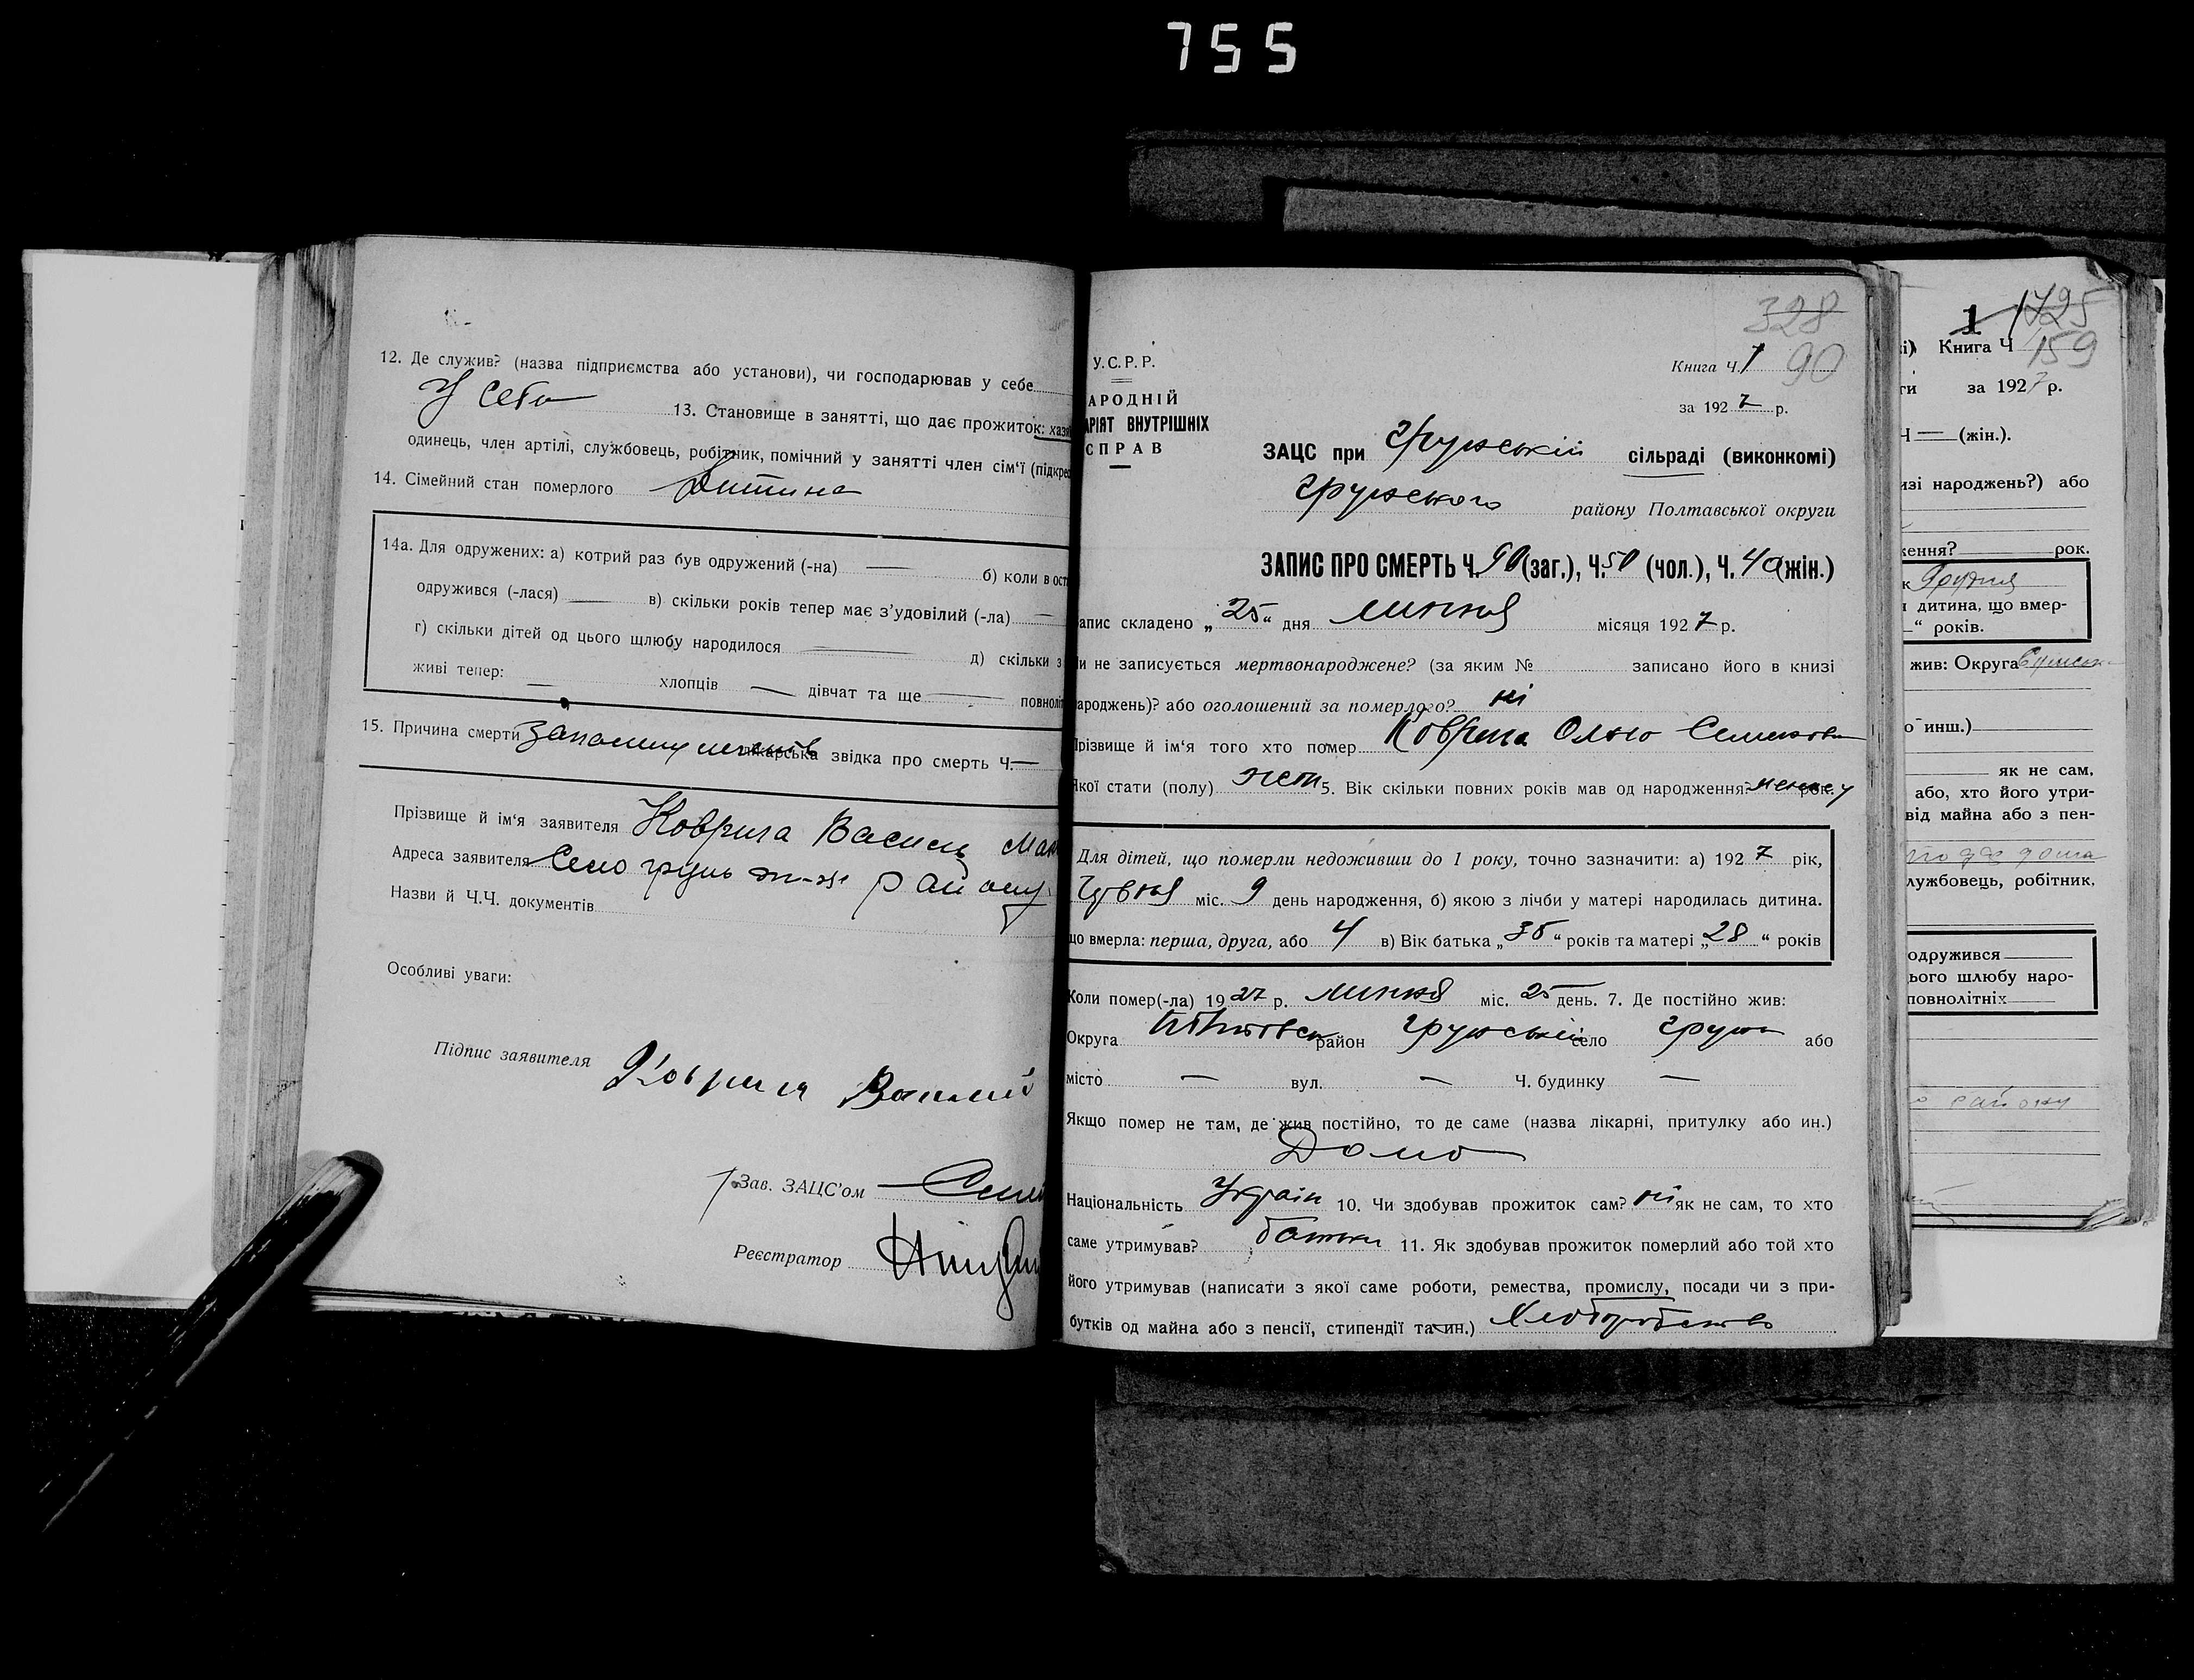 755
12. Де служив? (назва підприємства або установи), чи господарював у себе
У себе 13. Становище в занятті, що дає прожиток: хазя
одинець, член артілі, службовець, робітник, помічний у занятті член сім'ї (підкрес
14. Сімейний стан померлого Дитина
14а. Для одружених: а) котрий раз був одружений (-на) — б) коли в ост
одружився (-лася) — в) скільки років тепер має з'удовілий (-ла) —
г) скільки дітей од цього шлюбу народилося — д) скільки з
живі тепер: — хлопців — дівчат та ще — повноліт
15. Причина смерти лікарська звідка про смерть Ч. —
Прізвище й ім'я заявителя Коврига Василь
Адреса заявителя Село Грунь району
Назви й Ч.Ч. документів
Особливі уваги:
Підпис заявителя Коврига
Зав. ЗАЦС'ом
Реєстратор
328
У.С.Р.Р.
Книга Ч. 1 90
АРОДНІЙ
за 1927 р.
АРІЯТ ВНУТРІШНІХ
СПРАВ
ЗАЦС при Грунській сільраді (виконкомі)
Грунського району Полтавської округи
ЗАПИС ПРО СМЕРТЬ Ч. 90 (заг.), Ч. 50 (чол.), Ч. 40 (жін.)
апис складено „25" дня липня місяця 1927 р.
и не записується мертвонароджене? (за яким № записано його в книзі
ароджень)? або оголошений за померлого? ні
Прізвище й ім'я того хто помер Коврига Олько
Якої стати (полу) жен 5. Вік скільки повних років мав од народження рок.
Для дітей, що померли недоживши до 1 року, точно зазначити: а) 1927 рік,
міс. 9 день народження, б) якою з лічби у матері народилась дитина.
що вмерла: перша, друга, або 4 в) Вік батька „ " років та матері „28" років
Коли помер(-ла) 1927 р. липня міс. 25 день. 7. Де постійно жив:
Округа район Грунський село Грунь або
місто — вул. — Ч. будинку —
Якщо помер не там, де жив постійно, то де саме (назва лікарні, притулку або ин.)
Дома
Національність Україн 10. Чи здобував прожиток сам? ні як не сам, то хто
саме утримував? батьки 11. Як здобував прожиток померлий або той хто
його утримував (написати з якої саме роботи, ремества, промислу, посади чи з при-
бутків од майна або з пенсії, стипендії та ин.) Хлоборобство
1 1725
і) Книга Ч 159
ти за 1927 р.
Ч — (жін.).
изі народжень?) або
ження? рок.
к Грудня
и дитина, що вмер-
—" років.
жив: Округа
о инш.)
як не сам,
або, хто його утри-
від майна або з пен-
лужбовець, робітник,
одружився
ього шлюбу наро-
повнолітніх
району